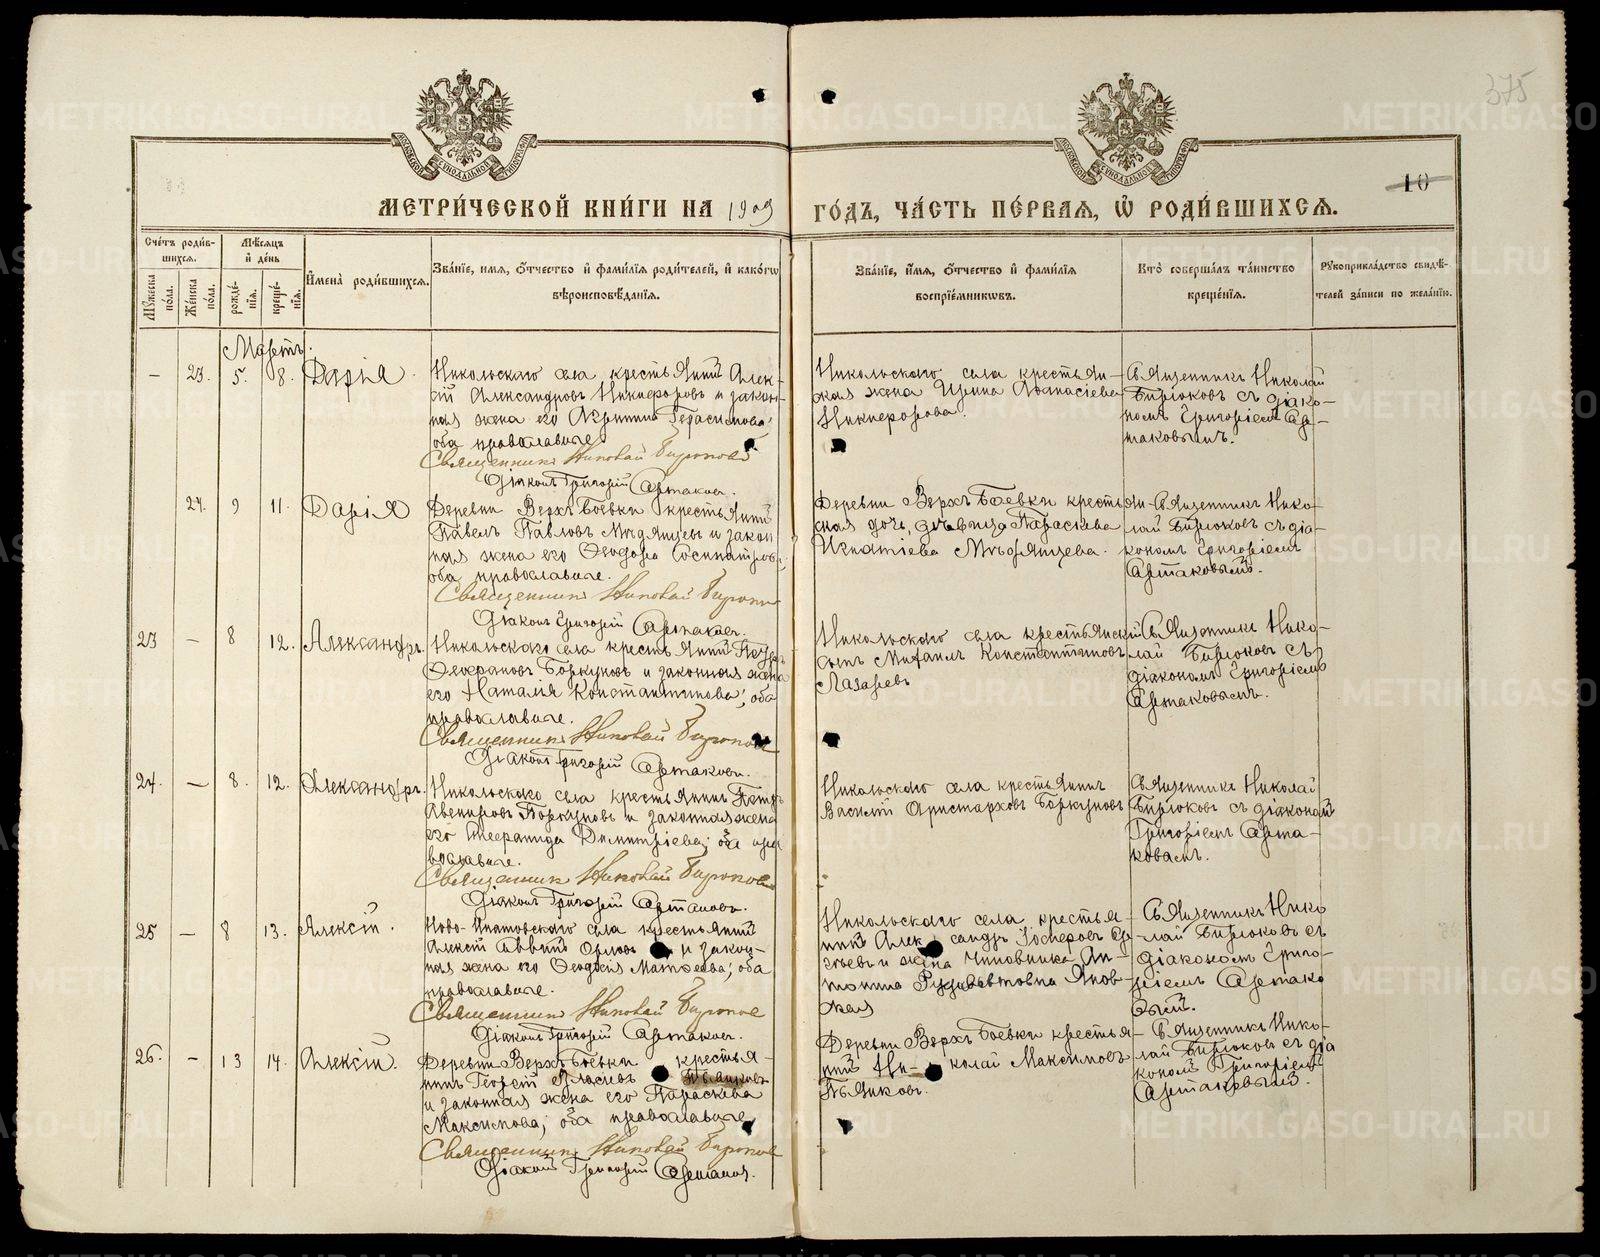 375
10
МЕТРИ́ЧЕСКОЙ КНИ́ГИ НА 1909 ГО́ДЪ, ЧА́СТЬ ПЕ́РВАЯ, Ѡ РОДИ́ВШИХСЯ.
Сче́тъ роди́в-
шихся.
Мѣ́сяцъ
и҆ де́нь
Му́жеска
по́ла.
Же́нска
по́ла.
рожде́-
нїя.
креще́-
нїя.
И҆мена̀ роди́вшихся.
Зва́нїе, и҆мя, ѻ҆́тчество и҆ фами́лїя роди́телей, и҆ како́гѡ
вѣроисповѣ́данїя.
Зва́нїе, и҆́мя, ѻ҆́тчество и҆ фами́лїя
воспрїе́мникѡвъ.
Кто̀ соверша́лъ та́инство
креще́нїя.
Рꙋкоприкла́дство свидѣ́-
телей за́писи по жела́нїю.
Мартъ.
– 23. 5. 8. Дарія
Никольскаго села крестьянинъ Алек-
сій Александровъ Никифоровъ и закон-
ная жена его Агриппина Герасимова;
оба православные
Священникъ Николай Бирюковъ
Діаконъ Григорій Артаковъ.
Никольскаго села крестьян-
ская жена Ирина Афанасіева
Никифорова.
Священникъ Николай
Бирюковъ съ діако-
номъ Григоріемъ Ар-
таковымъ.
24. 9 11. Дарія
Деревни Верхъ Боевки крестьянинъ
Павелъ Павловъ и закон
ная жена его Ѳеодора
оба православные.
Священникъ Николай Бирюковъ
Діаконъ Григорій Артаковъ.
Деревни Верхъ Боевки крестьян-
ская дочь, дѣвица Параскева
Игнатіева
Священникъ Нико-
лай Бирюковъ съ діа-
кономъ Григоріемъ
Артаковымъ.
23 – 8 12. Александръ.
Никольскаго села крестьянинъ
и законная жена
его Наталія Константинова; оба
православные.
Священникъ Николай Бирюковъ
Діаконъ Григорій Артаковъ.
Никольскаго села крестьянскій
сынъ Михаилъ Константиновъ
Лазаревъ
Священникъ Нико-
лай Бирюковъ съ
діакономъ Григоріемъ
Артаковымъ.
24. – 8. 12. Александръ.
Никольскаго села крестьянинъ Петръ
Авенировъ и законная жена
его Димитріева; оба пра
вославные.
Священникъ Николай Бирюковъ
Діаконъ Григорій Артаковъ.
Никольскаго села крестьянинъ
Василій Аристарховъ
Священникъ Николай
Бирюковъ съ діакономъ
Григоріемъ Арта-
ковымъ.
25 – 8 13. Алексій.
Ново-Ипатовскаго села крестьянинъ
Алексій Орловъ и закон-
ная жена его Матѳеева; оба
православные.
Священникъ Николай Бирюковъ
Діаконъ Григорій Артаковъ.
Никольскаго села крестья-
нинъ Александръ
и жена чиновника Ан-
тонина Янов-
ская
Священникъ Нико
лай Бирюковъ съ
діакономъ Григо-
ріемъ Артако
вымъ.
26. – 13 14. Алексій.
Деревни Верхъ Боевки крестья-
нинъ Георгій Власіевъ Пьянковъ
и законная жена его Параскева
Максимова; оба православные
Священникъ Николай Бирюковъ
Діаконъ Григорій Артаковъ.
Деревни Верхъ Боевки крестья-
нинъ Ни-колай Максимовъ
Пьянковъ.
Священникъ Нико-
лай Бирюковъ съ діа
кономъ Григоріемъ
Артаковымъ.
METRIKI.GASO-URAL.RU